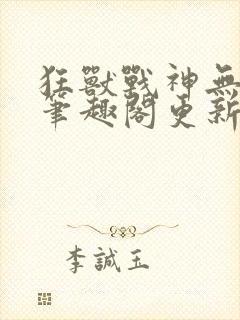 狂獸戰神無
筆趣閣更新
李誠玉